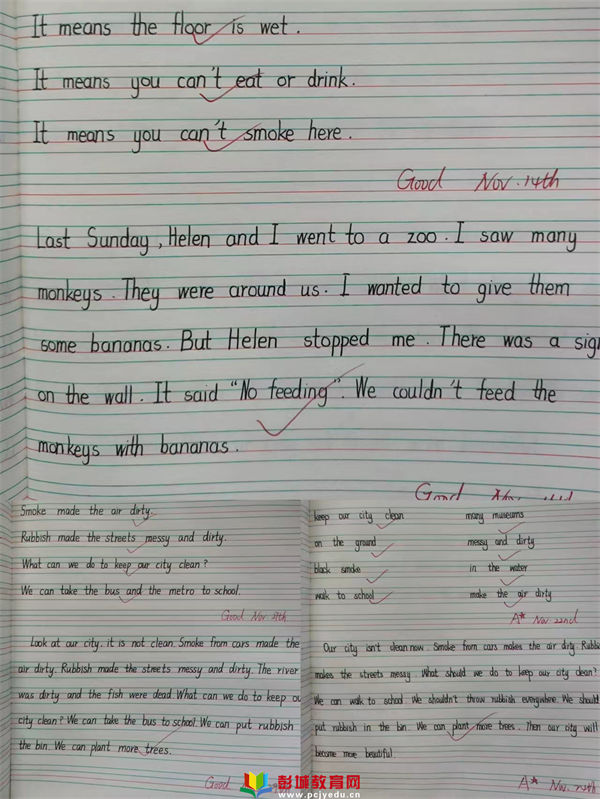 It means the floor is wet.
It means you can't eat or drink.
It means you can't smoke here.
Good Nov. 14th
Last Sunday, Helen and I went to a zoo. I saw many
monkeys. They were around us. I wanted to give them
some bananas. But Helen stopped me. There was a sign
on the wall. It said "No feeding". We couldn't feed the
monkeys with bananas.
Good
Smoke made the air dirty.
Rubbish made the streets messy and dirty.
What can we do to keep our city clean?
We can take the bus and the metro to school.
Good Nov.
Look at our city. it is not clean. Smoke from cars made the
air dirty. Rubbish made the streets messy and dirty. The river
was dirty and the fish were dead. What can we do to keep ou
city clean? We can take the bus to school. We can put rubbish
the bin. We can plant more trees.
Good
keep our city clean many museums
on the ground messy and dirty
black smoke in the water
walk to school make the air dirty
A* Nov. 22nd
Our city isn't clean now. Smoke from cars makes the air dirty. Rubbi
makes the streets messy. What should we do to keep our city clean?
We can walk to school. We shouldn't throw rubbish everywhere. We should
put rubbish in the bin. We can plant more trees. Then our city will
become more beautiful.
A* Nov. 24th
彭城教育网
www.pcjyedu.cn